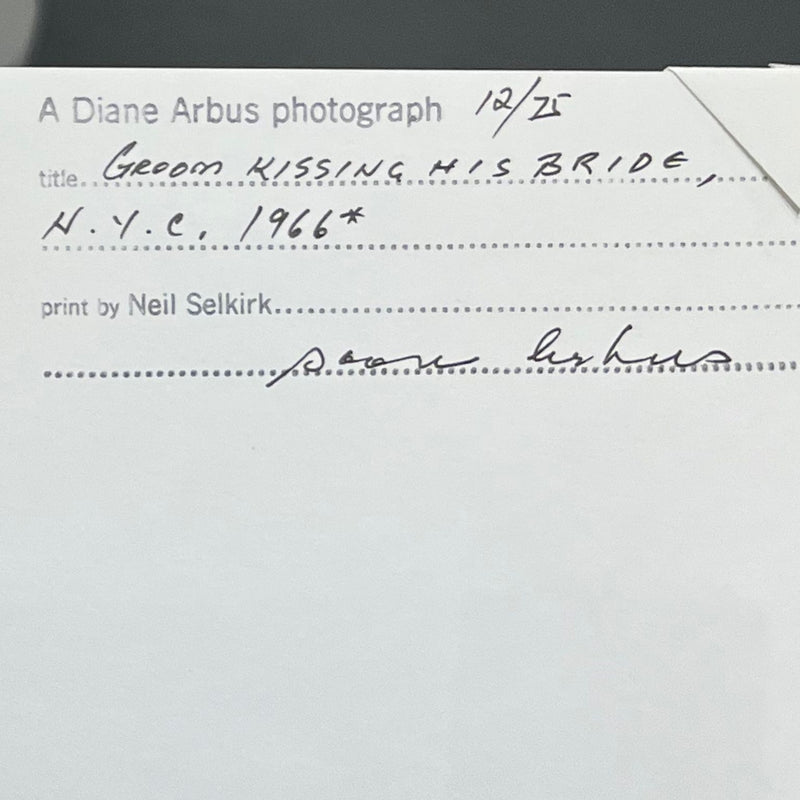 A Diane Arbus photograph 12/75
title. GROOM KISSING HIS BRIDE,
N.Y.C. 1966*
print by Neil Selkirk
Doon Arbus